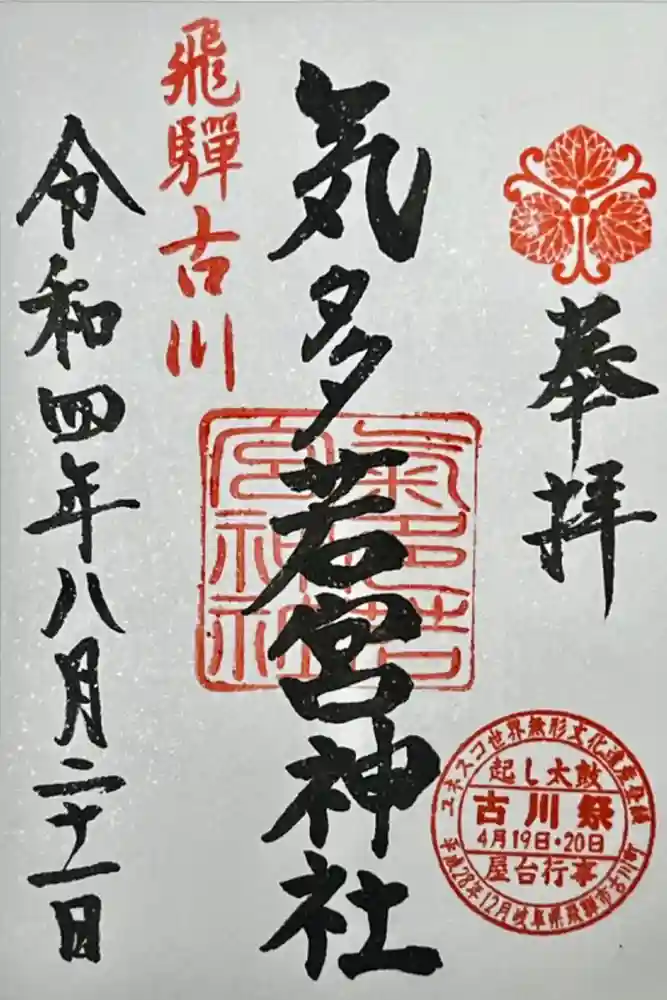 奉拝
気多若宮神社
飛騨古川
令和四年八月二十一日
氣多若宮神社
ユネスコ世界無形文化遺産登録
起し太鼓
古川祭
4月19日・20日
屋台行事
平成28年12月岐阜県飛騨市古川町